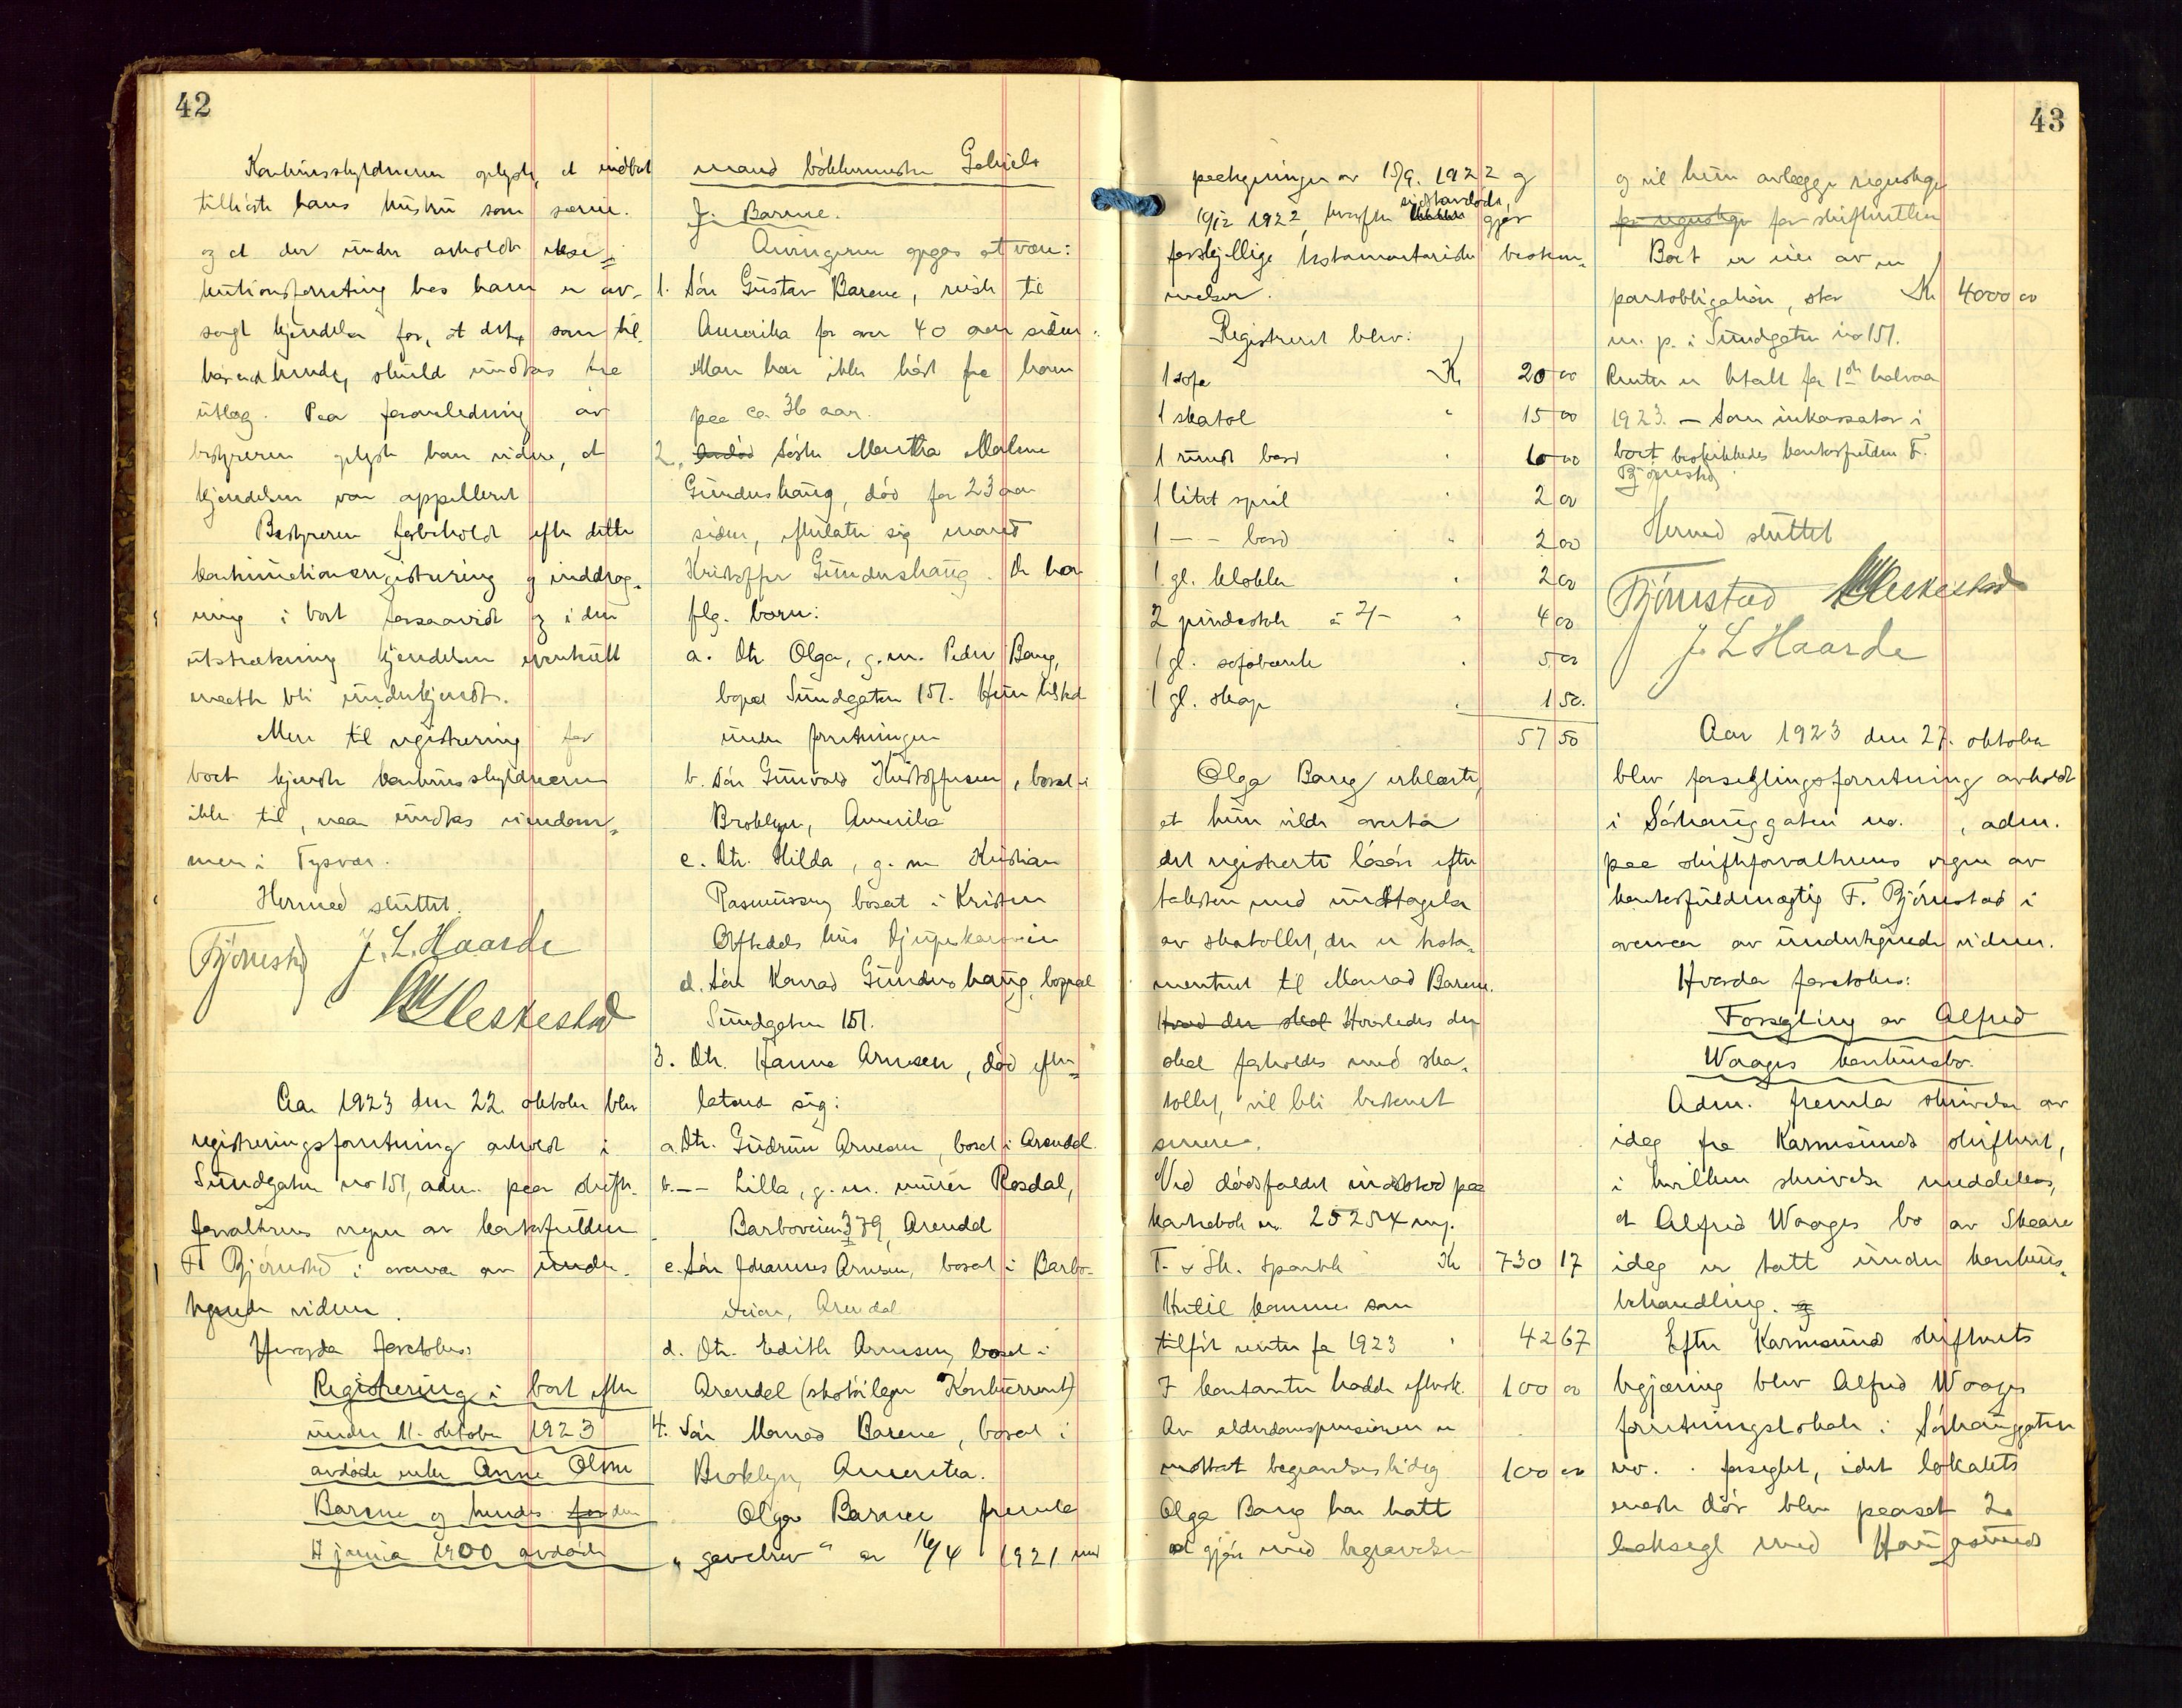 42
Konkursskyldneren oplyste, at indboet
tilhørte hans hustru som særeie
og at der under avholdt ekse-
kutionsforretning hos ham er av-
sagt kjendelse for, at dette, som til-
hørende hende, skulde undtas fra
utlæg. Paa foranledning av
bestyreren oplyste han videre, at
kjendelsen var appelleret
Bestyreren forbeholdt efter dette
konkursregistrering og inddrag-
ning i boet forsaavidt og i den
utstrækning kjendelsen eventuelt
maatte bli underkjendt.
Mere til registrering for
boet kjendte konkursskyldneren
ikke til, naar undtas eiendom-
men i Tysvær.
Hermed sluttet.
Bjørnstad J. L. Haarde
Meskestad
Aar 1923 den 22. oktober blev
registreringsforretning avholdt i
Sundgaten no 151, adm. paa skifte-
forvalterens vegne av kontorfuldm
F. Bjørnstad i overvær av under-
tegnede vidner.
Hvorda foretokes:
Registrering i boet efter
under 11. oktober 1923
avdøde enke Anne Oline
Barene og hendes for den
17 januar 1900 avdøde
mand bøkkermester Gabriel
J. Barene.
Arvingerne opgas at være:
1. Søn Gustav Barene, reiste til
Amerika for over 40 aar siden.
Man har ikke hørt fra ham
paa ca 36 aar.
2. Søster Martha Malene
Gundershaug, død for 23 aar
siden, efterlater sig mand
Kristoffer Gundershaug. De har
flg. barn:
a. Dtr. Olga, g. m. Peder Bang,
bopæl Sundgaten 151. Hun tilsted
under forretningen
b. Søn Gunvald Kristoffersen, bosat i
Broklyn, Amerika
c. Dtr. Hilda, g. m Kristian
Rasmussen, bosat i Kristen
Oftedals hus Djupaskarveien
d. Søn Konrad Gundershaug, bopæl
Sundgaten 151.
3. Dtr. Hanna Arnesen, død efter-
latend sig:
a. Dtr. Gudrun Arnesen, bosat i Arendal.
b. — — Lilla, g. m. murer Rosdal,
Barboveien 379, Arendal
c. Søn Johannes Arnesen, bosat i Barbo-
veien, Arendal
d. Dtr. Edith Arnesen, bosat i
Arendal (skotøilager "Konkurrent")
4. Søn Monrad Barene, bosat i
Broklyn, Amerika.
Olga Barene fremla
"gavebrev" av 16/4 1921 med
43
paategninger av 15/9. 1922 og
19/12 1922, hvorefter sidstavdøde gjør
forskjellige testamentariske bestem-
melser.
Registreret blev:
1 sofa Kr 20 00
1 skatol " 15 00
1 rundt bord " 6 00
1 litet speil " 2 00
1 — — bord " 2 00
1 gl. klokke " 2 00
2 pindestole à 2/- " 4 00
1 gl. sofabænk " 5 00
1 gl. skap " 1 50.
57 50
Olga Bang erklærte,
at hun vilde overta
det registrerte løsøre efter
taksten med undtagelse
av skatollet, der er testa-
mentert til Monrad Barene.
Hvad der skal Hvorledes der
skal forholdes med ska-
tollet, vil bli bestemt
senere.
Ved dødsfaldet indestod paa
bankebok nr. 25254 ny.
T. & Sk. Sparebk Kr 730 17
Hertil kommer som
tilført renter for 1923 " 42 67
I kontanter hadde efterl. 100 00
Av alderdomspensionen er
mottat begravelsesbidrag 100 00
Olga Bang har hatt
at gjøre med begravelsen
og vil hun avlægge regnskap
for regnskap for skifteretten
Boet er eier av en
pantobligation, stor Kr 4000 00
m. p. i Sundgaten no 151.
Renter er betalt for 1ste halvaar
1923. — Som inkassator i
boet beskikkedes kontorfuldm F.
Bjørnstad
Hermed sluttet
Bjørnstad Meskestad
J. L Haarde
Aar 1923 den 27. oktober
blev forseglingsforretning avholdt
i Sørhauggaten no. , adm.
paa skifteforvalterens vegne av
kontorfuldmægtig F. Bjørnstad i
overvær av undertegnede vidner.
Hvorda foretokes:
Forsegling av Alfred
Waages konkursbo.
Adm. fremla skrivelse av
idag fra Karmsund skifteret,
i hvilken skrivelse meddeles,
at Alfred Waages bo av Skaare
idag er tatt under konkurs-
behandling. og
Efter Karmsund skifterets
begjæring blev Alfred Waages
forretningslokale i Sørhauggaten
no. . forseglet, idet lokalets
ene dør blev paasat 2
laksegl med Haugesunds